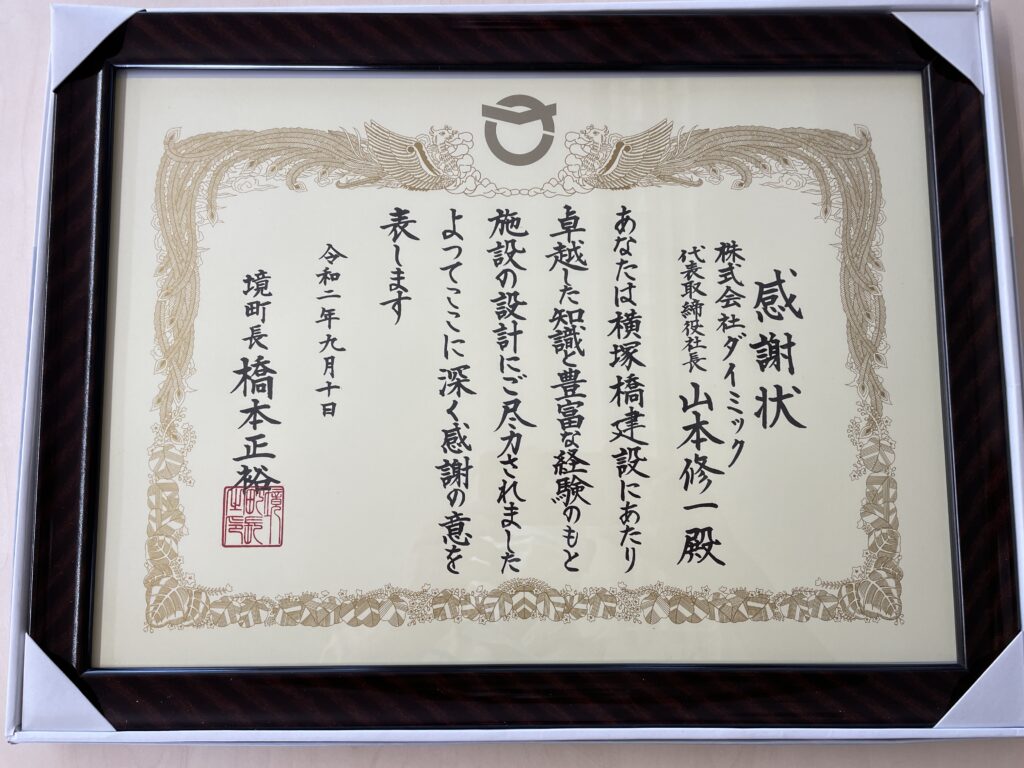 感謝状
株式会社ダイミック
代表取締役社長 山本修一殿
あなたは横塚橋建設にあたり
卓越した知識と豊富な経験のもと
施設の設計にご尽力されました
よってここに深く感謝の意を
表します
令和二年九月十日
境町長 橋本正裕
境町長之印